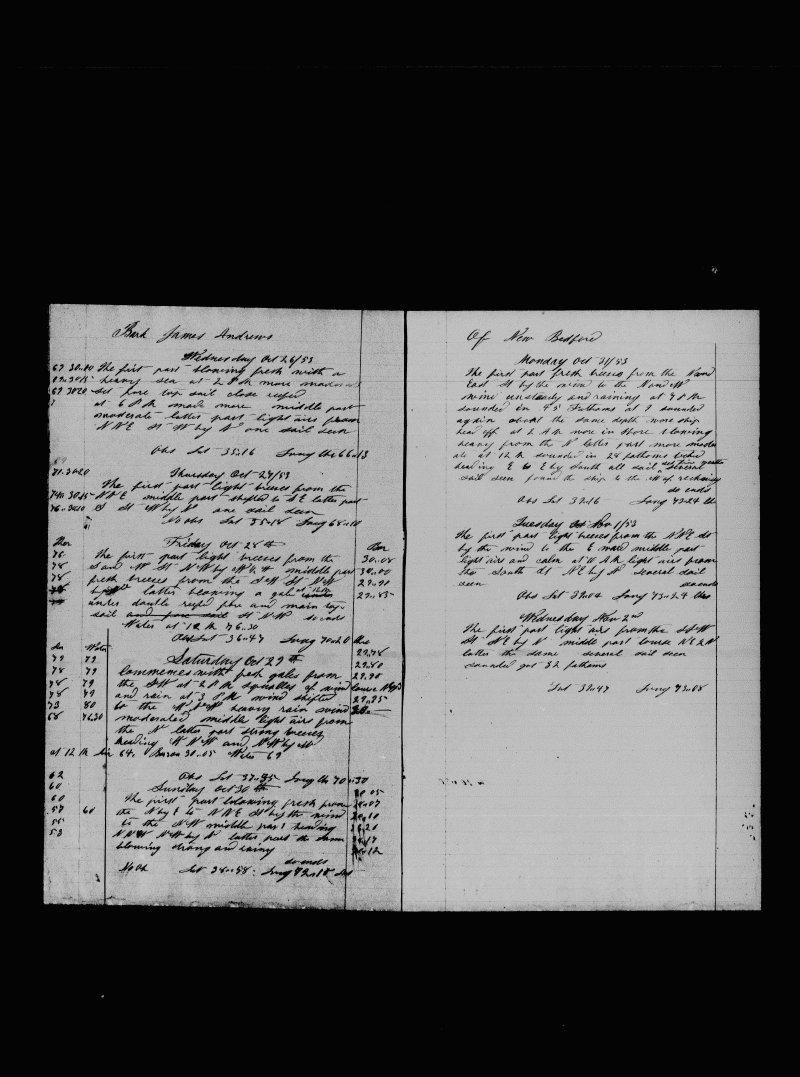 Bark James Andrews
Wednesday Oct 26/53
The first part blowing fresh with a
heavy sea at 2 P M more moderate
Set fore top sail close reefed
at 6 P M made more middle part
moderate latter part light airs from
N N E St W by N one sail seen
Obs Lat 35..16 Long 66..13
71.30.20
Thursday Oct 27/53
The first part light breezes from the
N N E middle part shifted to S E latter part
S St W by N one sail seen
No obs Lat 35..18 Long 68..10
Ther
Friday Oct 28th
Bar
76
The first part light breezes from the
30..08
78
S and W St N W by W middle part
30..00
78
fresh breezes from the S W St N W
29..90
latter blowing a gale
29..85
under double reefd fore and main top
sail St N W so ends
Water at 12 M 76..30
Obs Lat 36..47 Long 70..20
Water
29..78
79 79
Saturday Oct 29th
29..80
78 79
Commences with fresh gales from
29..90
78 79
the S W at 2 P M squalls of wind
78 79
and rain at 3 P M wind shifted
29..95
73 80
to the W heavy rain wind
68 76.30
moderated middle light airs from
the N latter part strong breezes
heading W N W and N W by W
at 12 M Air 64 Barom 30..05 Water 69
62
Obs Lat 37..35 Long 70..30
60
Sunday Oct 30th
30 05
60
The first part blowing fresh from
30..07
57 60
the N by E to N N E St by the wind
30..10
55
to the N W middle part heading
30.20
53
N N W N W by N latter part the same
30.17
blowing strong and rainy
30.12
so ends
No Ob Lat 38..58 Long 72..18
Of New Bedford
Monday Oct 31/53
The first part fresh breezes from the Nord
East St by the wind to the Nord W
wind unsteady and raining at 7 P M
sounded in 45 Fathoms at 9 sounded
again about the same depth wore ship
head off at 2 A M wore in shore blowing
heavy from the N latter part more moder
ate at 12 M sounded in 28 fathoms
heading E to E by South all sail set several
sail seen found the ship to the W of reckoning
so ends
Obs Lat 39.16 Long 73.24
Tuesday Nov 1/53
The first part light breezes from the N N E St
by the wind to the E ward middle part
light airs and calm at 10 A M light airs from
the South St N E by N several sail
seen so ends
Obs Lat 39.04 Long 73..24
Wednesday Nov 2nd
The first part light airs from the S W
St N E by N middle part course N E 2 N
latter the same several sail seen
sounded got 32 fathoms
Lat 39..47 Long 73..08